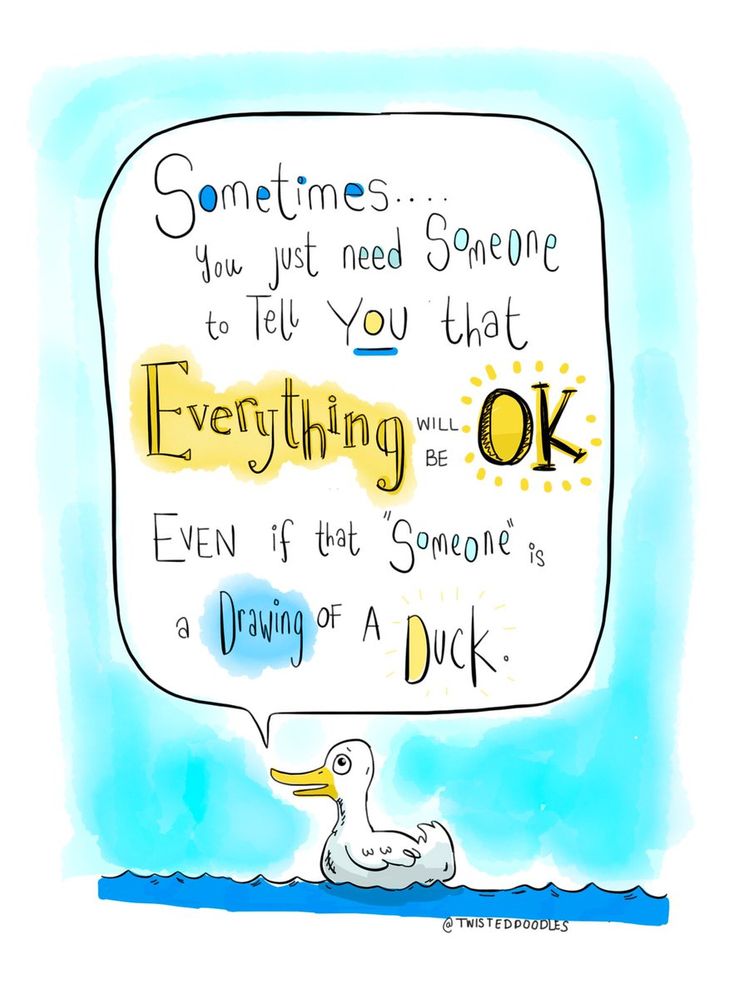 Sometimes....
you just need Someone
to Tell YOU that
Everything WILL BE OK
EVEN if that "Someone" is
a Drawing OF A DUCK.
@TWISTEDDOODLES